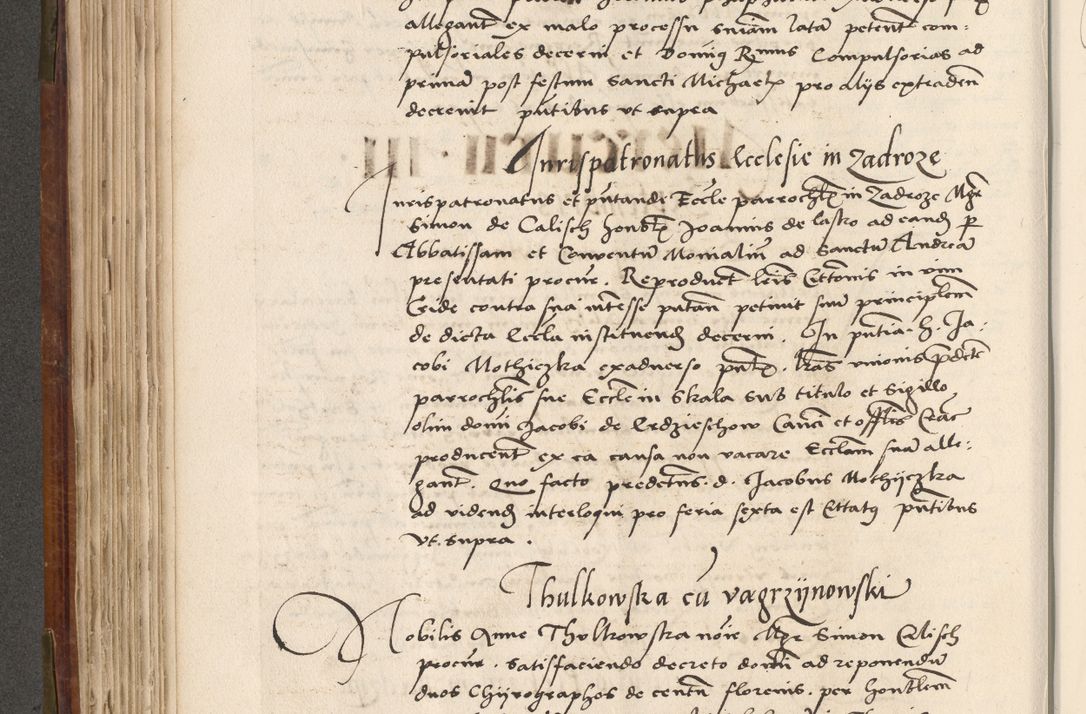 allegant ex malo processu sniam latam petent com:
pulsoriales decerni et Dominq Rmus Compulsorias ad
primam post festum Sancti Michaelis pro alijs extradend
decrevit putibus vt supra
Jurispatronatus Ecclesie in Zadroze
Jurispatronatus et putande Eccle parrochlis in Zadroze Mgr
Simon de Calisch honsti Joannis de lasko ad eand per
Abbatissam et Conventum Monialium ad Sanctum Andream
presentati procur. Reproduct leris Cttonis in vim
Cride contra sua intesse putan petivit suum principlem
de dicta Eccla instituend decerni. In putia. h. Ja:
cobi Mothiczka exadverso putis. lras vnionis predcte
parrochlis sue Eccle in Skala sub titulo et Sigillo
olim domi Jacobi de Erdzieschow Canci et offlis Crac
producent ex ea causa non vacare Ecclam suam alle:
gant. Quo facto predctus. d. Jacobus Mothijczka
ad vidend interloqui pro feria sexta est Cttatq putibus
vt. supra.
Thulkowska cu vagrzijnowski
Nobilis Anne Thulkowska noie Mgr Simon Clisch
procur. satisfaciendo decreto domi ad reponendum
duos Chijrographos de centum florenis. per honstlem